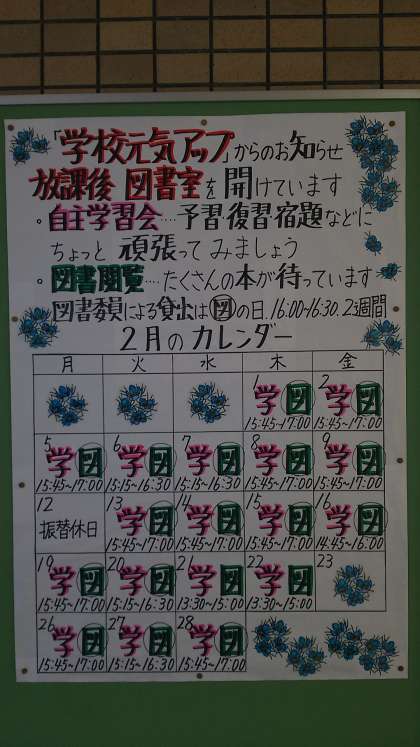 「学校元気アップ」からのお知らせ
放課後 図書室を開けています
・自主学習会…予習復習宿題などに
ちょっと頑張ってみましょう
・図書閲覧…たくさんの本が待っています
図書委員による貸出は図の日.16:00~16:30.2週間
2月のカレンダー
月 火 水 木 金
1 学 図 15:45~17:00 2 学 図 15:45~17:00
5 学 図 15:45~17:00 6 学 図 15:15~16:30 7 学 図 15:15~16:30 8 学 図 15:45~17:00 9 学 図 15:45~17:00
12 振替休日 13 学 図 15:45~17:00 14 学 図 15:45~17:00 15 学 図 15:45~17:00 16 学 図 14:45~16:00
19 学 図 15:45~17:00 20 学 図 15:15~16:30 21 学 図 13:30~15:00 22 学 図 13:30~15:00 23
26 学 図 15:45~17:00 27 学 図 15:15~16:30 28 学 図 15:45~17:00